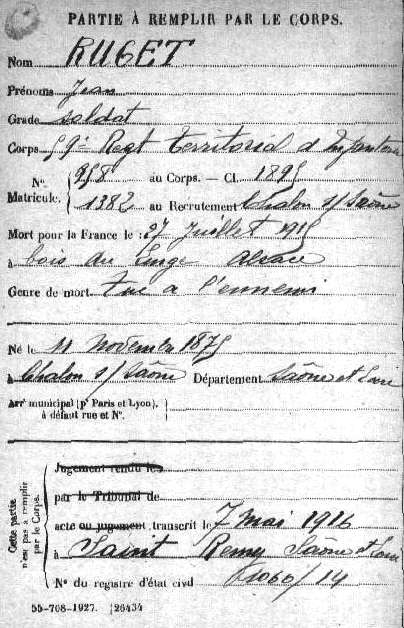 PARTIE À REMPLIR PAR LE CORPS.
Nom RUGET
Prénoms Jean
Grade soldat
Corps 59e Regt Territorial d'Infanterie
Nos Matricule. 958 au Corps. — Cl. 1895
1382 au Recrutement Chalon s/ Saône
Mort pour la France le : 27 Juillet 1915
à bois du Linge Alsace
Genre de mort tué à l'ennemi
Né le 11 Novembre 1875
à Chalon s/ Saône Département Saône et Loire
Arrt municipal (pr Paris et Lyon),
à défaut rue et N°.
Cette partie n'est pas à remplir par le Corps.
Jugement rendu le
par le Tribunal de
acte ou jugement transcrit le 7 Mai 1916
à Saint Remy Saône et Loire
N° du registre d'état civil
55-708-1927. [26434